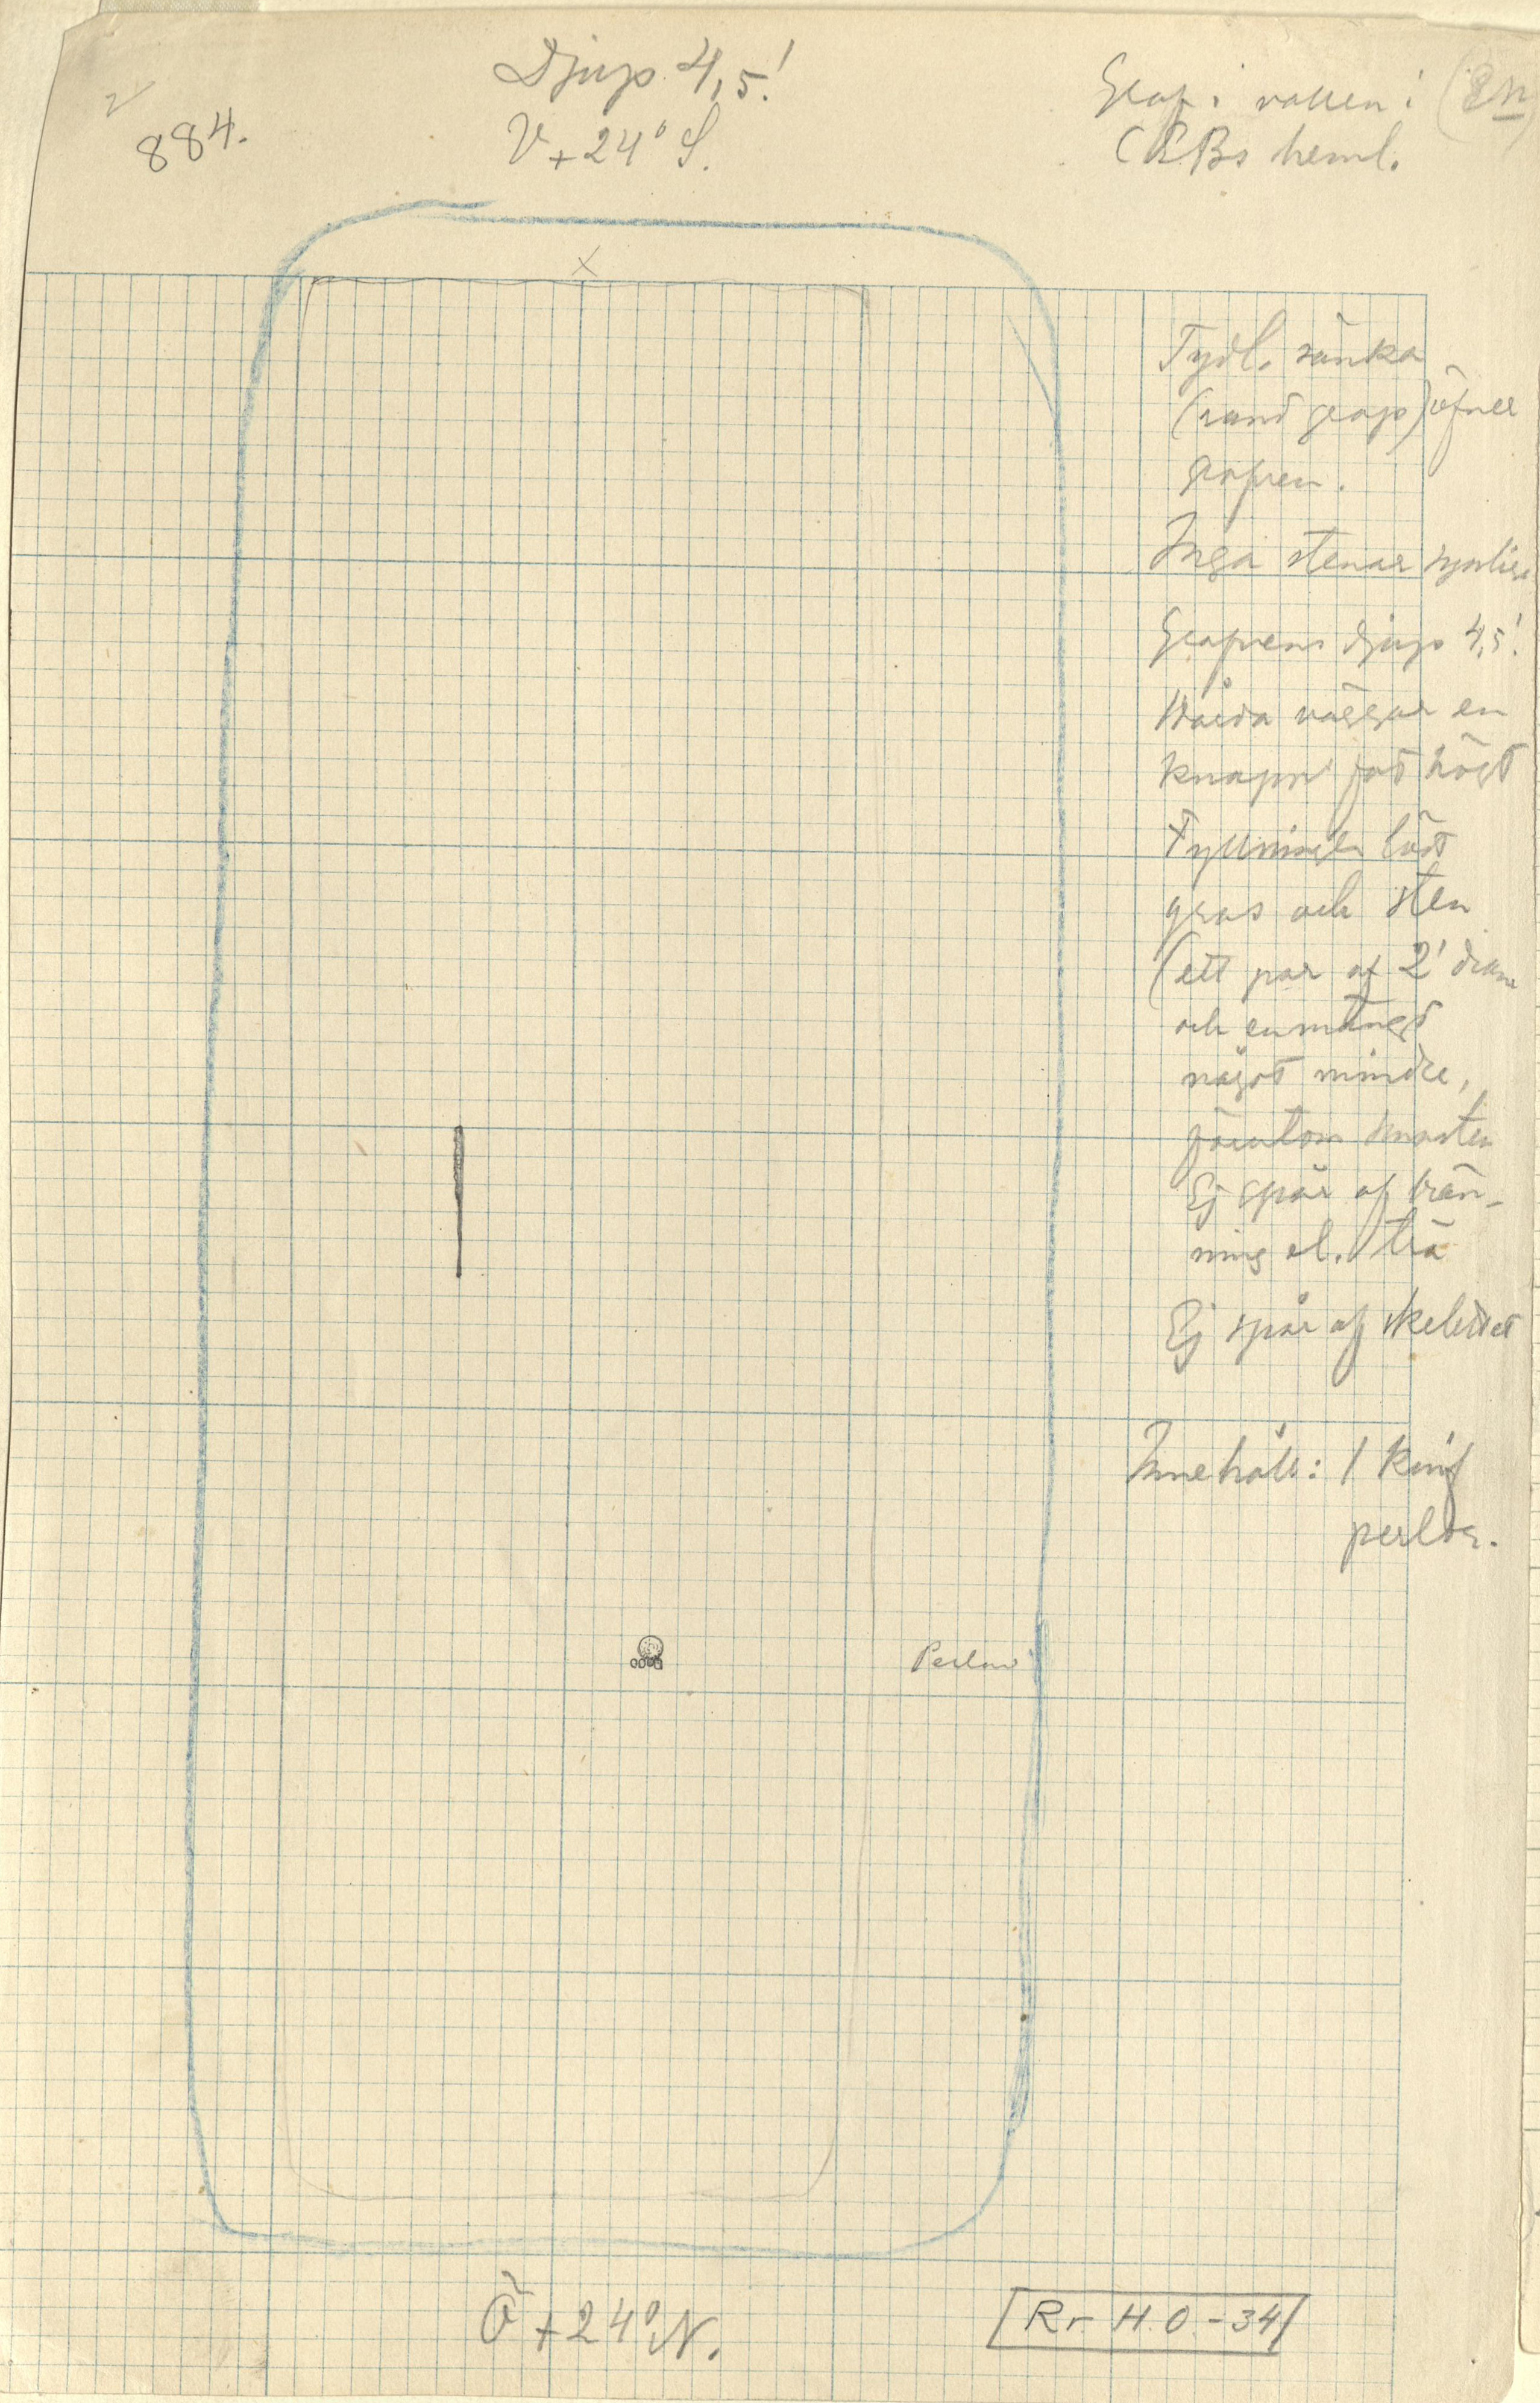 884.
Djup 4,5'.
V + 24° S.
Graf i vallen i
CEBs heml.
Tydl. sänka
(rund grop) öfver
grafven.
Inga stenar synliga
Grafvens djup 4,5'.
Hårda väggar en
knapp fot högt
Fyllningen löst
grus och sten
(ett par af 2' diam
och en mängd
något mindre,
förutom småsten
Ej spår af brän-
ning el. trä
Ej spår af skelettet
Innehåll: 1 knif
perlor.
Perlor
Ö + 24° N.
Rr H.O.-34